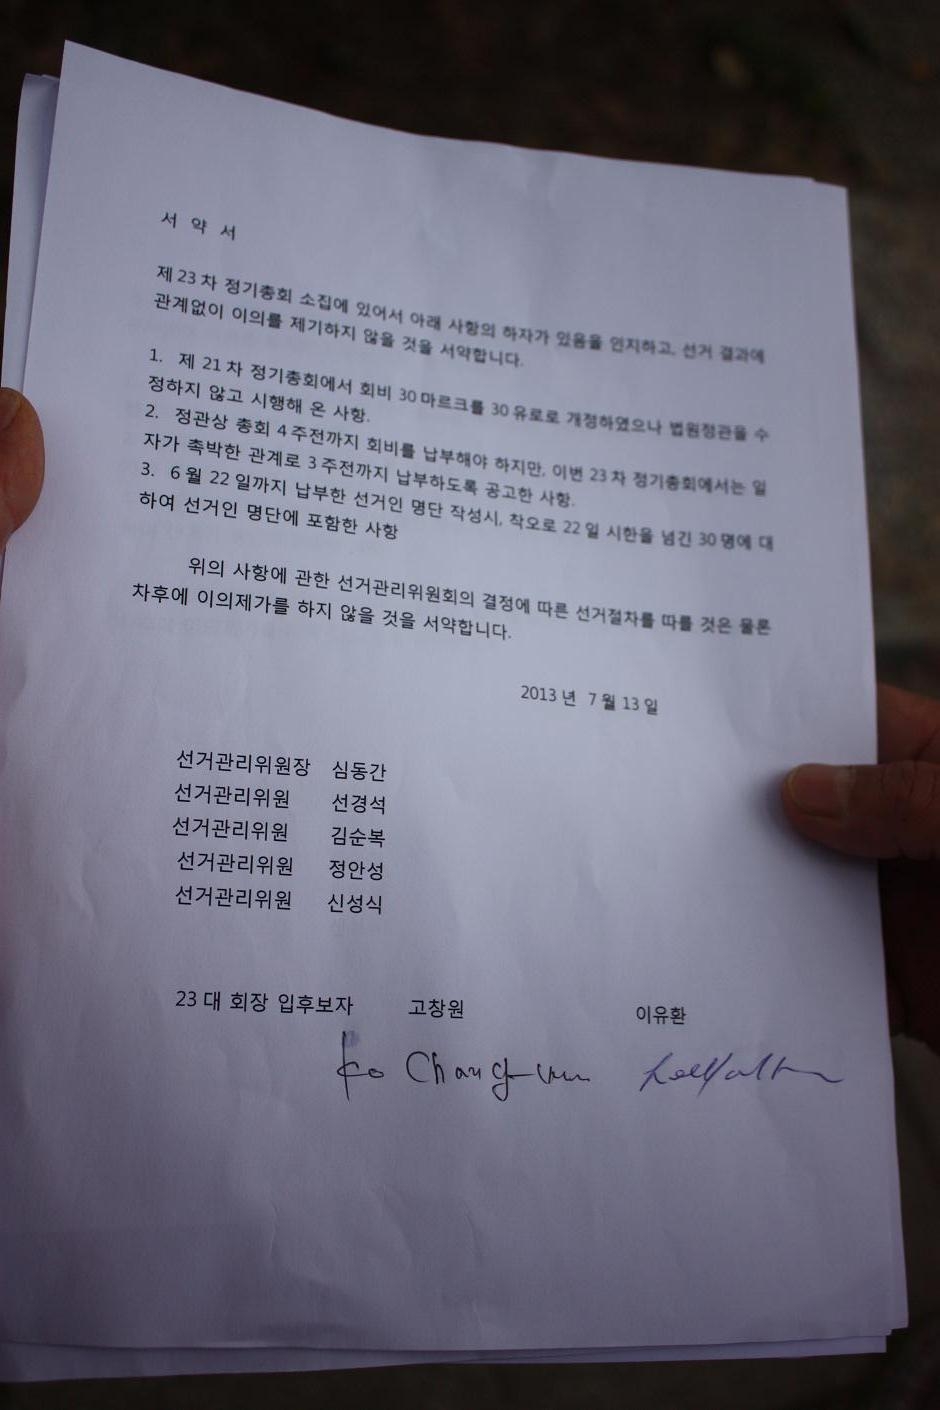 서 약 서
제 23 차 정기총회 소집에 있어서 아래 사항의 하자가 있음을 인지하고, 선거 결과에
관계없이 이의를 제기하지 않을 것을 서약합니다.
1. 제 21 차 정기총회에서 회비 30 마르크를 30 유로로 개정하였으나 법원정관을 수
정하지 않고 시행해 온 사항.
2. 정관상 총회 4 주전까지 회비를 납부해야 하지만, 이번 23 차 정기총회에서는 일
자가 촉박한 관계로 3 주전까지 납부하도록 공고한 사항.
3. 6 월 22 일까지 납부한 선거인 명단 작성시, 착오로 22 일 시한을 넘긴 30 명에 대
하여 선거인 명단에 포함한 사항
위의 사항에 관한 선거관리위원회의 결정에 따른 선거절차를 따를 것은 물론
차후에 이의제가를 하지 않을 것을 서약합니다.
2013 년 7 월 13 일
선거관리위원장 심동간
선거관리위원 선경석
선거관리위원 김순복
선거관리위원 정안성
선거관리위원 신성식
23 대 회장 입후보자 고창원 이유환
Ko Chang-